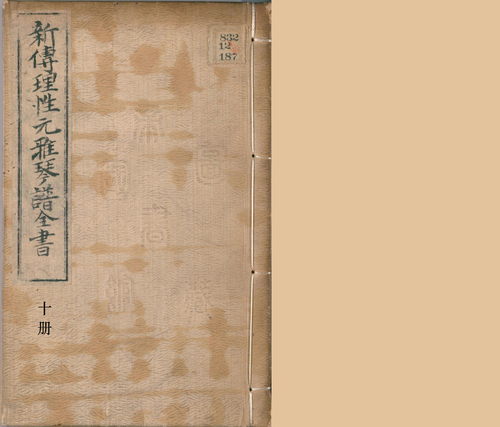 新傳理性元雅琴譜全書
十册
832
12
187